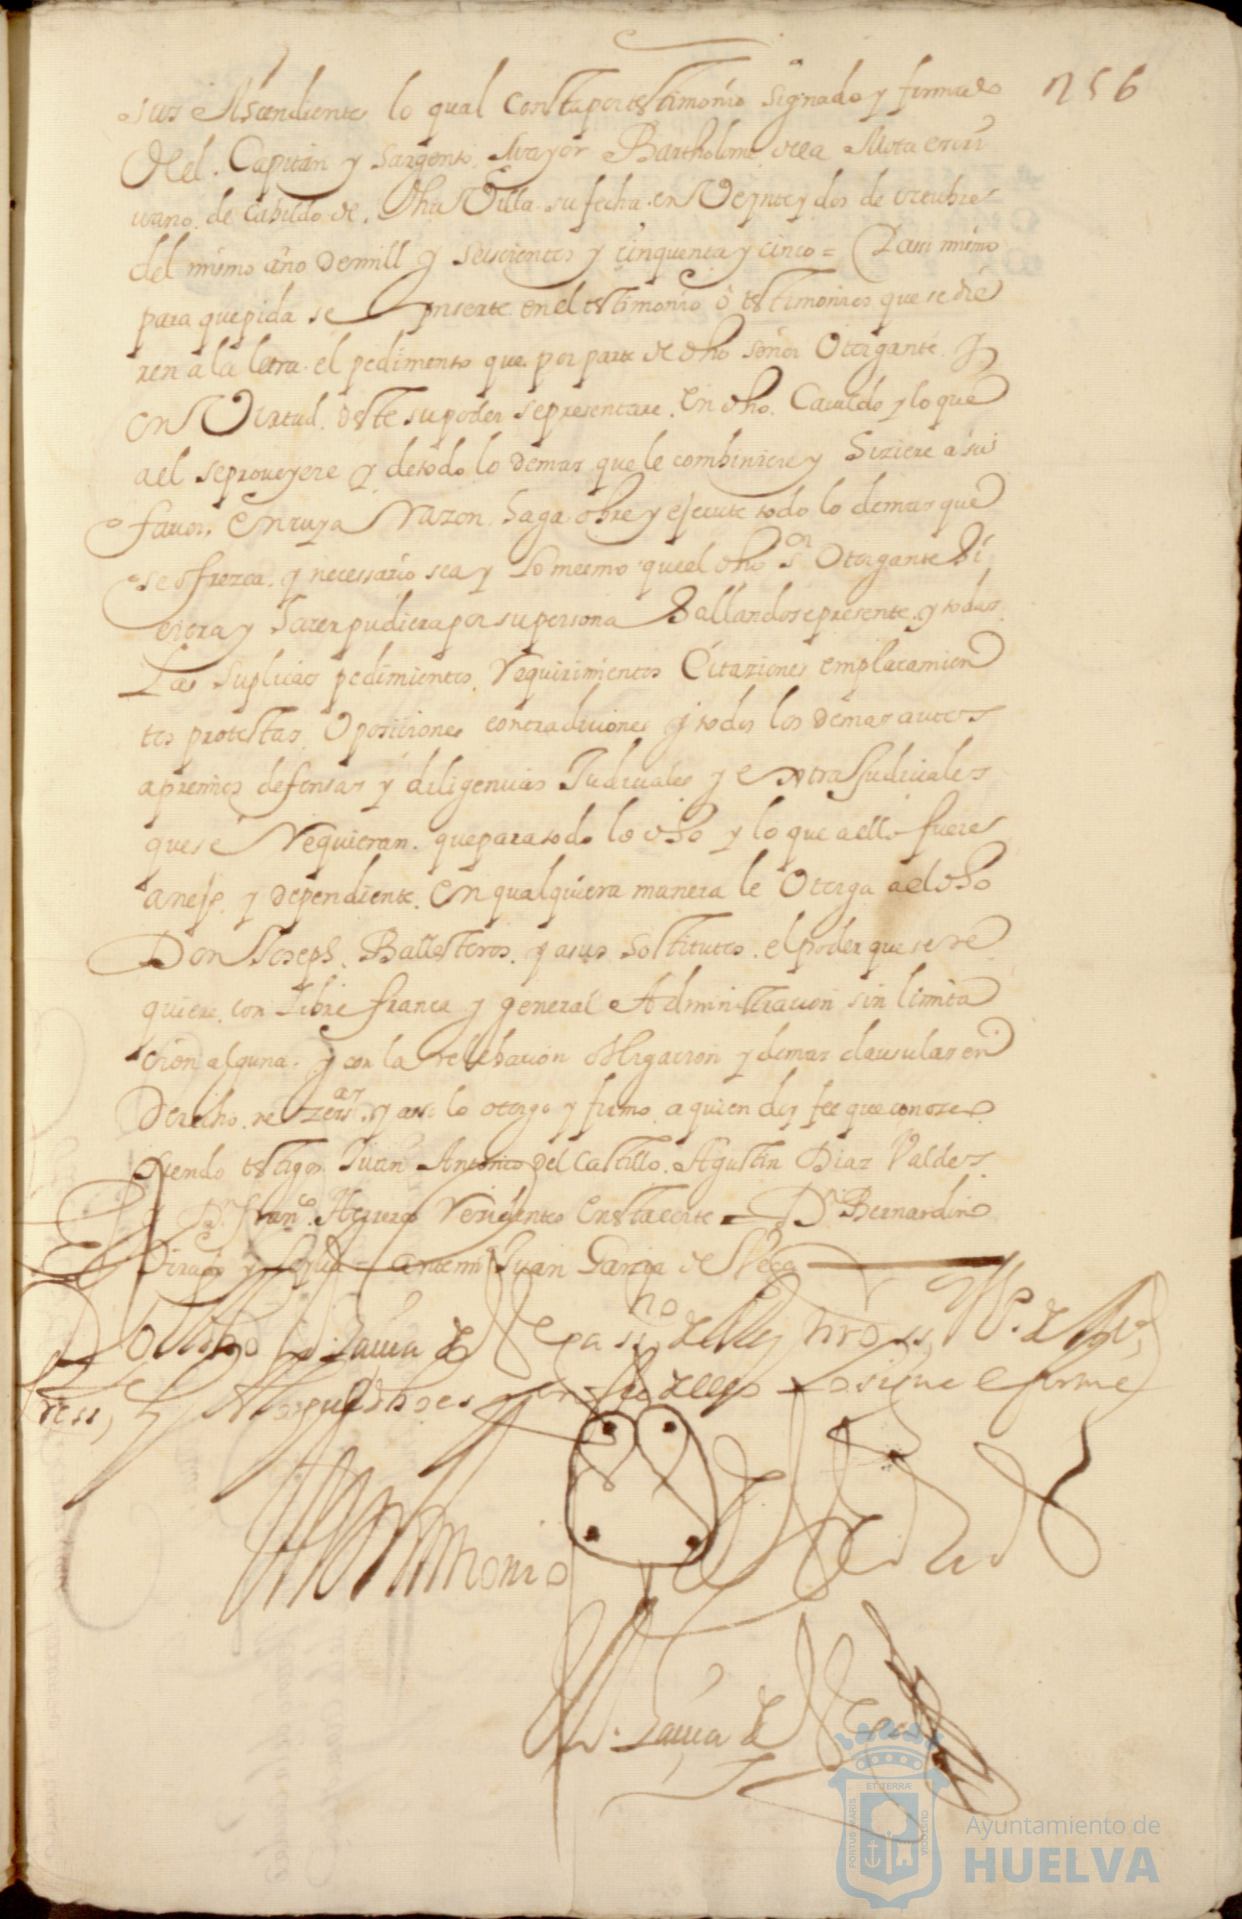 256
sus Asendientes lo qual Consta por testimonio signado y firmado
de el Capitan y Sargento Mayor Bartholome de la Mota escri
uano de Cabildo de dha Villa su fecha en Veynte y dos de octubre
del mismo año de mill y seiscientos y cinquenta y cinco = Y assi mismo
para que pida se ynserte en el testimonio o testimonios que se die
ren a la letra el pedimento que por parte de dho señor Otorgante y
en Virtud deste su poder se presentare en dho Cauildo y lo que
a el se proueyere y de todo lo demas que le combiniere y hiziere a su
fauor, en cuya Razon haga obre y ejecute todo lo demas que
se ofrezca y necessario sea y lo mesmo que el dho sor Otorgante hi
ciera y hacer pudiera por su persona hallandose presente y todas
Las suplicas pedimientos Requirimientos Citaziones emplacamien
tos protestas Oposiciones contradiciones y todos los demas autos
apremios defensas y diligencias Judiciales y extrajudiciales
que se Requieran que para todo lo dho y lo que a ello fuere
anejo y dependiente en qualquiera manera le Otorga a el dho
Don Joseph Ballesteros y a sus sostitutos el poder que se re
quiere con libre franca y general Administracion sin limita
cion alguna y con la relebacion obligacion y demas clausulas en
Derecho nezesarias y assi lo otorgo y firmo a quien doy fee que conozco
siendo testigos Juan Antonio del Castillo Agustin Diaz Valdes
Dn Franco Herrero Residentes en esta corte = Dn Bernardino
= antemi Juan Garzia de Vega
Garcia de Vega ssno del Rey nro ss
signe e firme
Garcia de Vega
ET TERRÆ
PORTUS MARIS
CUSTODIA
Ayuntamiento de
HUELVA